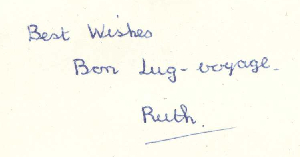 Best Wishes
Bon Lug-voyage.
Ruth.